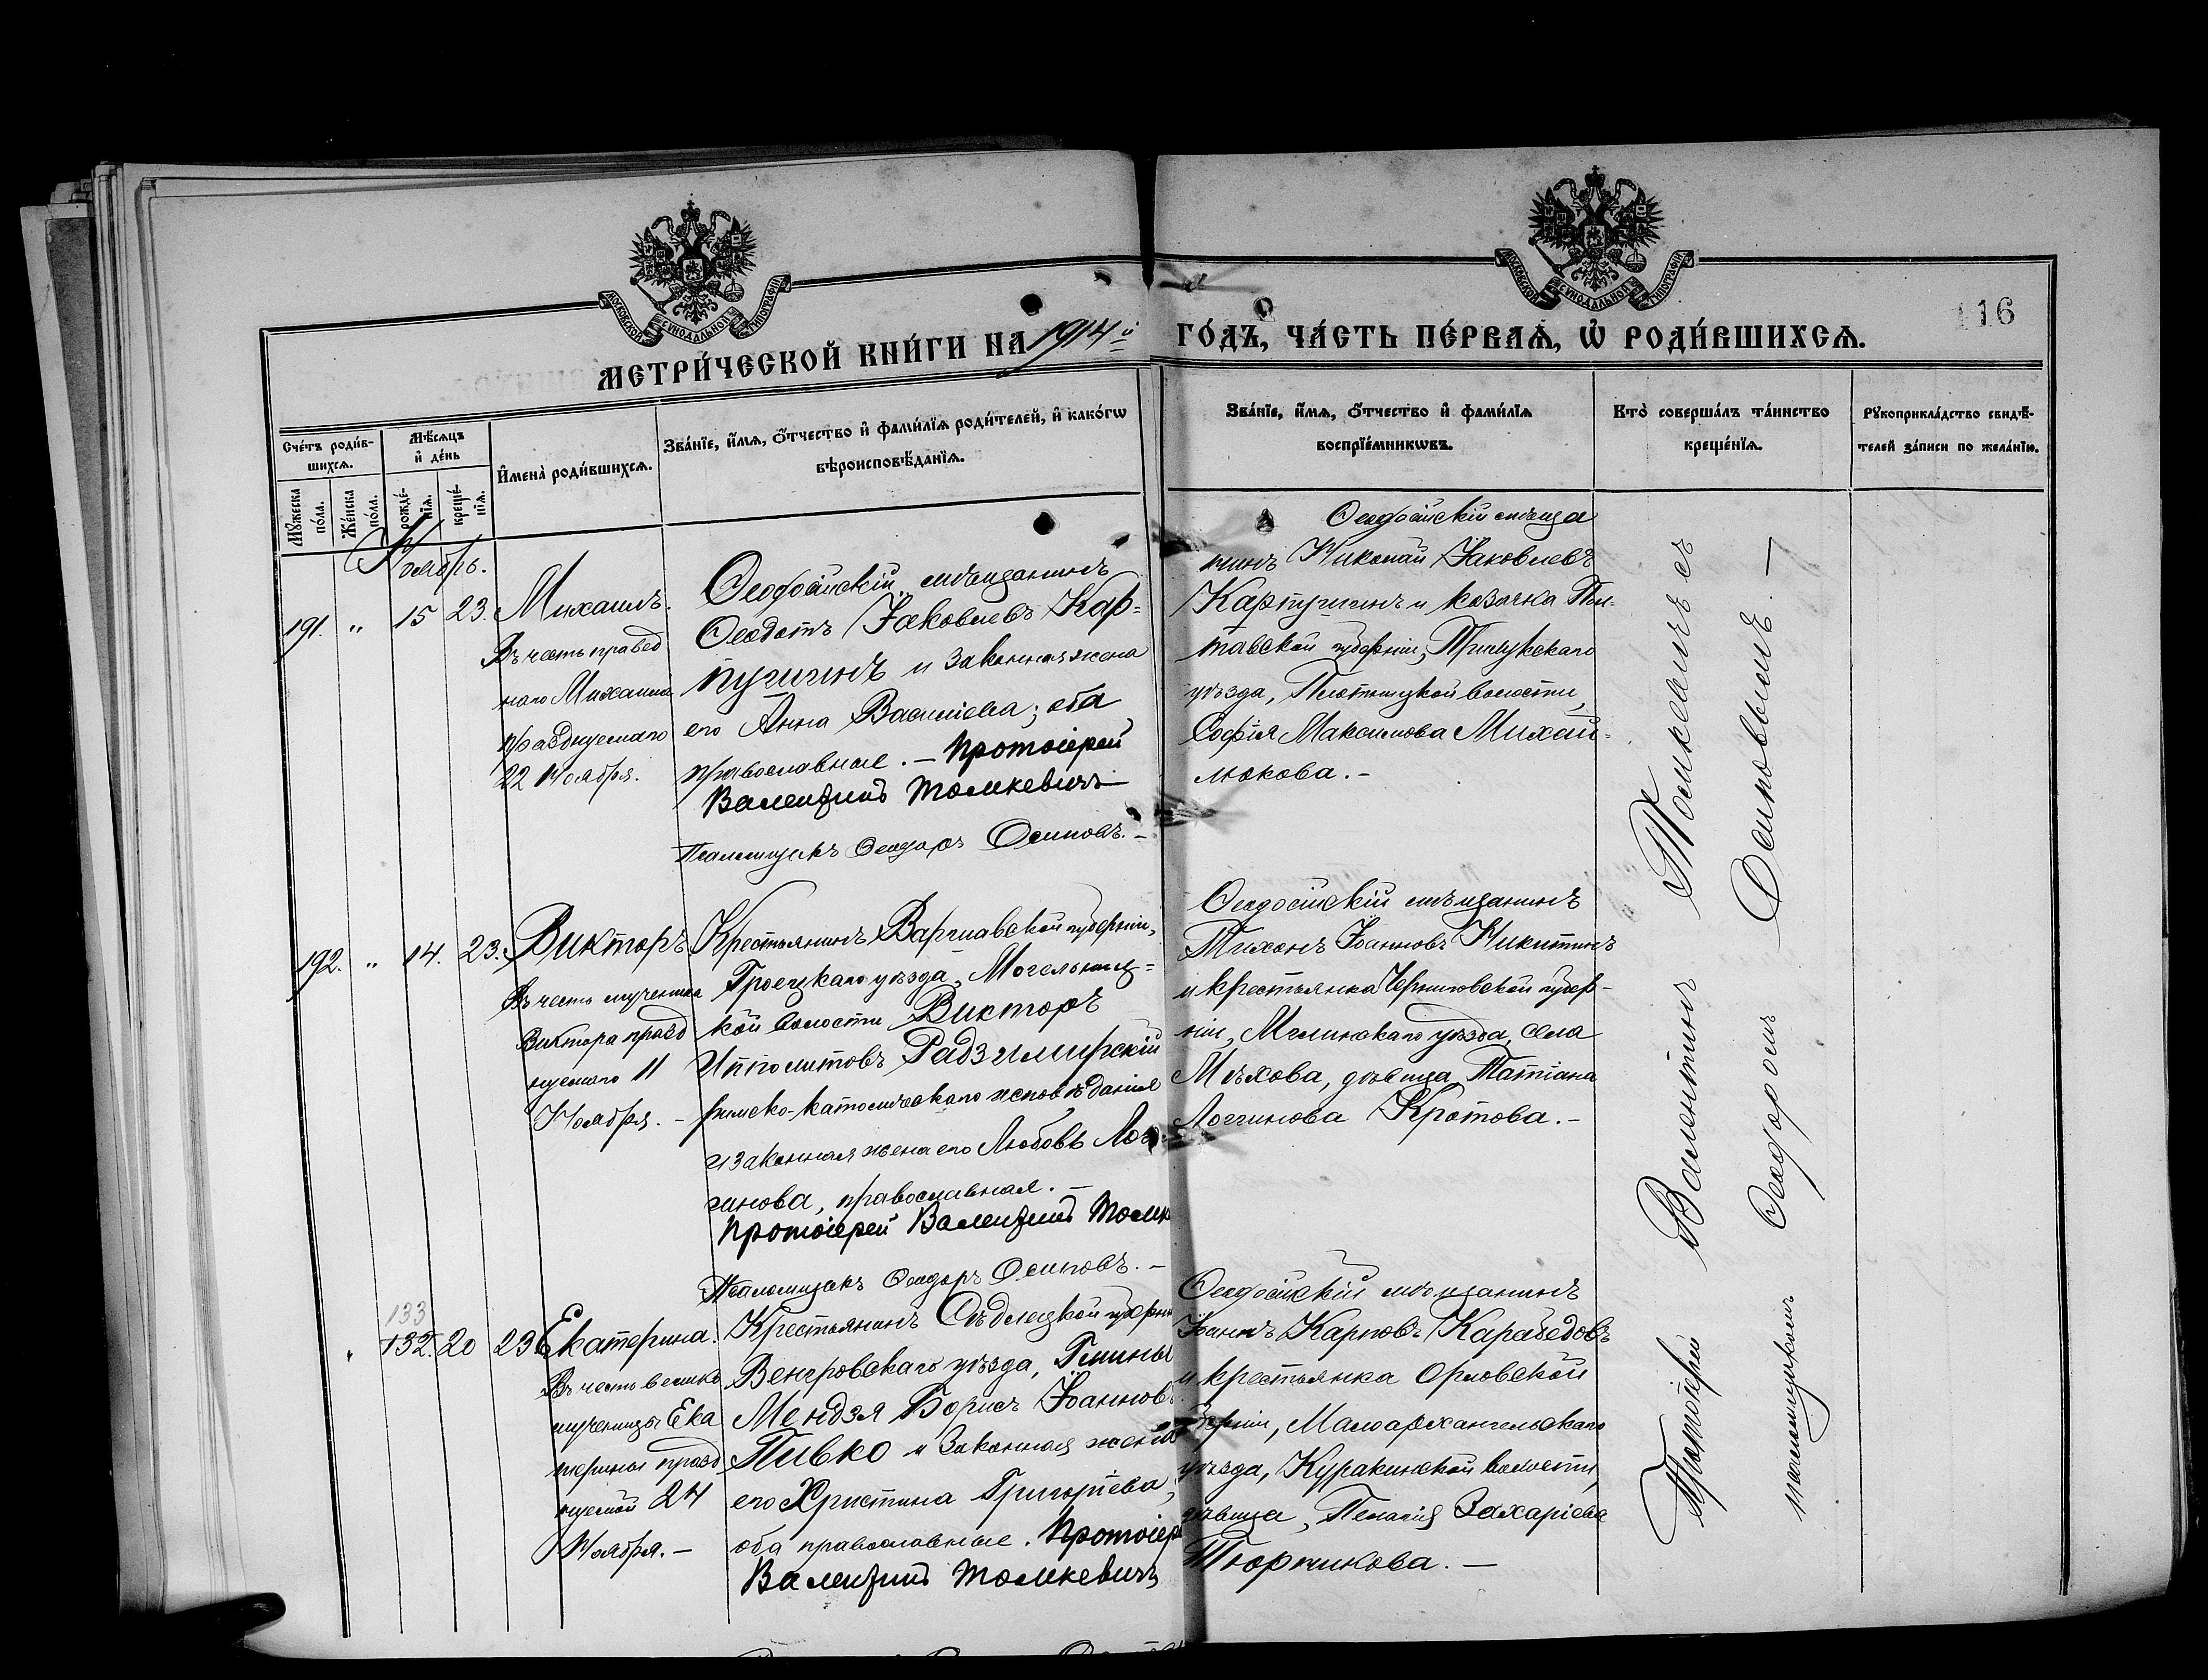 МОСКОВСКОЙ СѴНОДАЛЬНОЙ ТИПОГРАФІИ
МОСКОВСКОЙ СѴНОДАЛЬНОЙ ТИПОГРАФІИ
116
МЕТРИ́ЧЕСКОЙ КНИ́ГИ НА 1914й ГО́ДЪ, ЧА́СТЬ ПЕ́РВАѦ, Ѡ҆ РОДИ́ВШИХСѦ.
Сче́тъ роди́в-
шихсѧ.
Мꙋ́жеска по́ла.
Же́нска по́ла.
Мѣ́сѧцъ
и҆ де́нь
рожде́-
нїѧ.
креще́-
нїѧ.
И҆мена̀ роди́вшихсѧ.
Зва́нїе, и҆́мѧ, ѻ҆́тчество и҆ фами́лїѧ роди́телей, и҆ како́гѡ
вѣроисповѣ́данїѧ.
Зва́нїе, и҆́мѧ, ѻ҆́тчество и҆ фами́лїѧ
воспрїе́мникѡвъ.
Кто̀ соверша́лъ та́инство
креще́нїѧ.
Рꙋкоприкла́дство свидѣ́-
телей за́писи по жела́нїю.
Ноябрь.
191. " 15 23. Михаилъ.
Въ честь правед
наго Михаила
празднуемаго
22 Ноября.
Ѳеодосійскій мѣщанинъ
Ѳеодотъ Іаковлевъ Кар-
пугинъ и законная жена
его Анна Василіева; оба
православные. – Протоіерей
Валентинъ Томкевичъ
Псаломщикъ Ѳеодоръ Осиповъ. –
Ѳеодосійскій мѣща
нинъ Николай Іаковлевъ
Карпугинъ и козачка Пол-
тавской губерніи, Прилукскаго
уѣзда, волости,
Софія Максимова Михай-
люкова. –
192. " 14. 23. Викторъ
Въ честь мученика
Виктора празд
нуемаго 11
Ноября. –
Крестьянинъ Варшавской губерніи,
Гроецкаго уѣзда, Могельниц-
кой волости Викторъ
Ипполитовъ Радзимирскій
римско-католическаго исповѣданія
и законная жена его Любовь Лог-
гинова, православная. –
Протоіерей Валентинъ Томк
Псаломщикъ Ѳеодоръ Осиповъ. –
Ѳеодосійскій мѣщанинъ
Тихонъ Іоанновъ Никитинъ
и крестьянка Черниговской губер-
ніи, Мглинскаго уѣзда, села
Мѣхова, дѣвица Татіана
Логгинова Кротова. –
133
132. 20 23 Екатерина.
Въ честь велико
мученицы Ека
терины празд
нуемой 24
Ноября. –
Крестьянинъ Сѣдлецкой губерніи
Венгровскаго уѣзда, Гмины
Мендзя Борисъ Іоанновъ
Пивко и законная жена
его Христина Григоріева,
оба православные. Протоіере
Валентинъ Томкевичъ
Ѳеодосійскій мѣщанинъ
Іоаннъ Карповъ Карабедовъ
и крестьянка Орловской
губерніи, Малоархангельскаго
уѣзда, Куракинской волости,
дѣвица, Пелагія Захаріева
Тюрникова. –
Протоіерей Валентинъ Томкевичъ съ
псаломщикомъ Ѳеодоромъ Осиповымъ. –